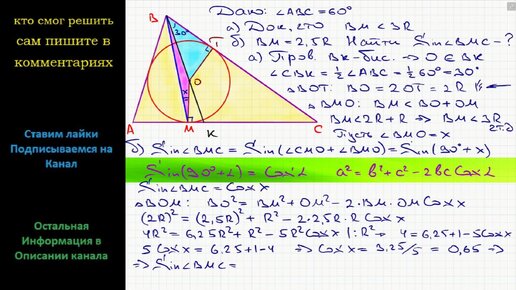 кто смог решить
сам пишите в
комментариях
Ставим лайки
Подписываемся на
Канал
Остальная
Информация в
Описании канала
B
30°
T
O
x
A
M
K
C
Дано: ∠ABC = 60°
а) Док, что BM < 3R
б) BM = 2,5R Найти Sin∠BMC - ?
а) Пров. BK - бис. → O ∈ BK
∠CBK = ½∠ABC = ½·60° = 30°
△BOT: BO = 2OT = 2R
△BMO: BM < BO + OM
BM < 2R + R → BM < 3R
ч.т.д.
Пусть ∠BMO = x
б) Sin∠BMC = Sin(∠CMO + ∠BMO) = Sin(90° + x)
Sin(90° + α) = Cos α   a² = b² + c² - 2bc Cos α
Sin∠BMC = Cos x
△BOM: BO² = BM² + OM² - 2·BM·OM Cos x
(2R)² = (2,5R)² + R² - 2·2,5R·R Cos x
4R² = 6,25R² + R² - 5R² Cos x |:R² → 4 = 6,25 + 1 - 5Cos x
5Cos x = 6,25 + 1 - 4 → Cos x = 3,25/5 = 0,65 →
→ Sin∠BMC =